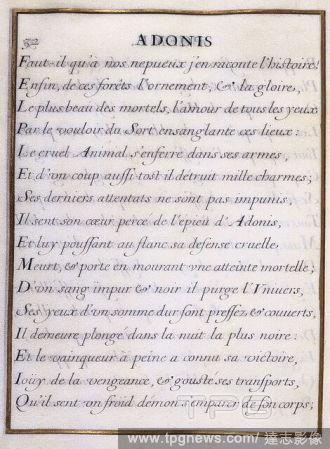 32
ADONIS
Faut-il qu'à nos nepueux j'en raconte l'histoire!
Enfin, de ces forêts l'ornement, & la gloire,
Le plus beau des mortels, l'amour de tous les yeux,
Par le vouloir du Sort ensanglante ces lieux:
Le cruel Animal s'enferre dans ses armes,
Et d'vn coup aussi-tost il détruit mille charmes;
Ses derniers attentats ne sont pas impunis,
Il sent son cœur percé de l'epieu d'Adonis,
Et luy poussant au flanc sa défense cruelle
Meurt, & porte en mourant vne atteinte mortelle;
D'vn sang impur & noir il purge l'Vnivers,
Ses yeux d'vn somme dur sont pressez & couverts,
Il demeure plongé dans la nuit la plus noire:
Et le vainqueur à peine a connu sa victoire,
Joüy de la vengeance, & gousté ses transports,
Qu'il sent vn froid démon s'emparer de son corps;
TPG
www.tpgnews.com / 達志影像